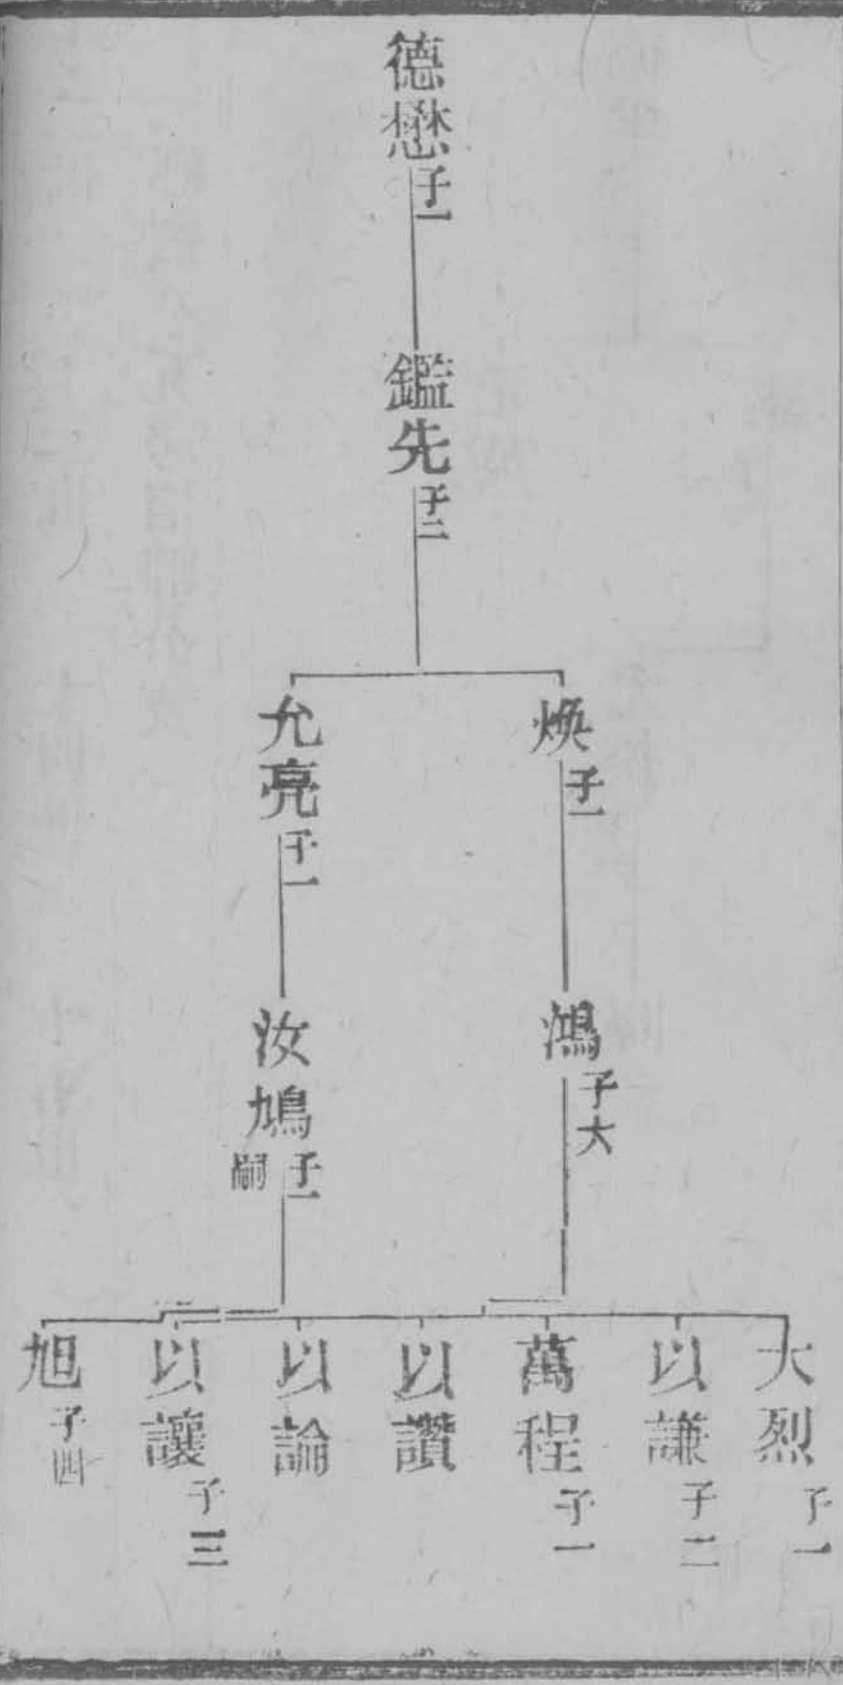 德懋子一
鑑先子二
煥子一
允亮子一
鴻子大
汝鳩子一嗣
大烈子一
以謙子二
萬程子一
以讚
以論
以讓子三
旭子四